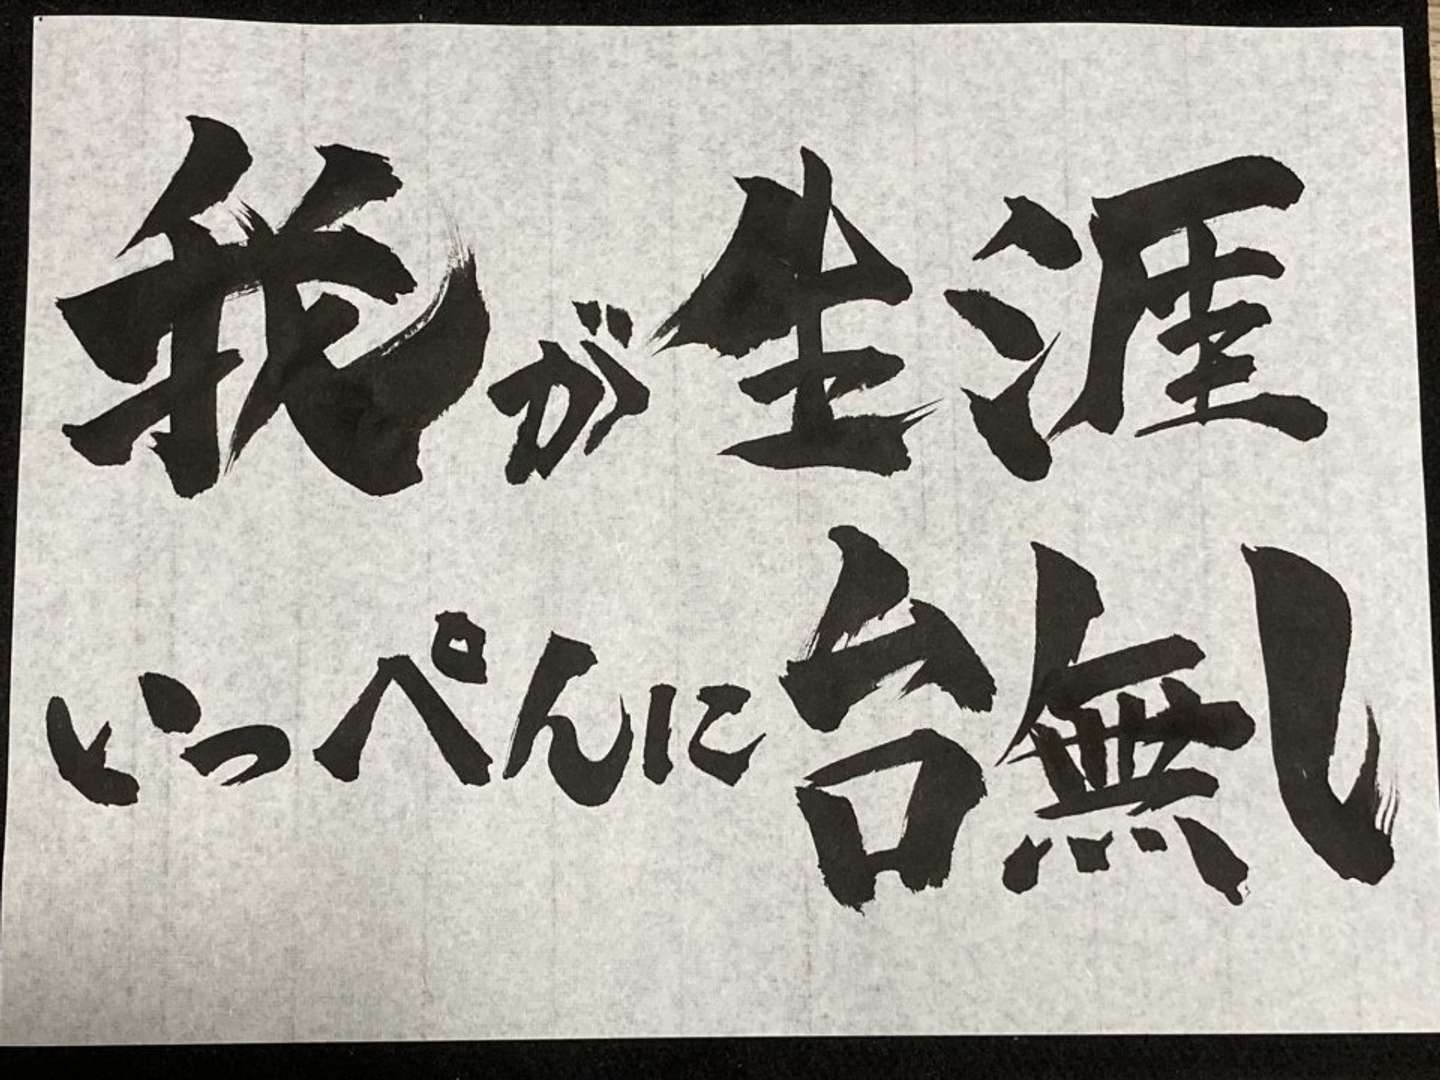 我が生涯
いっぺんに台無し